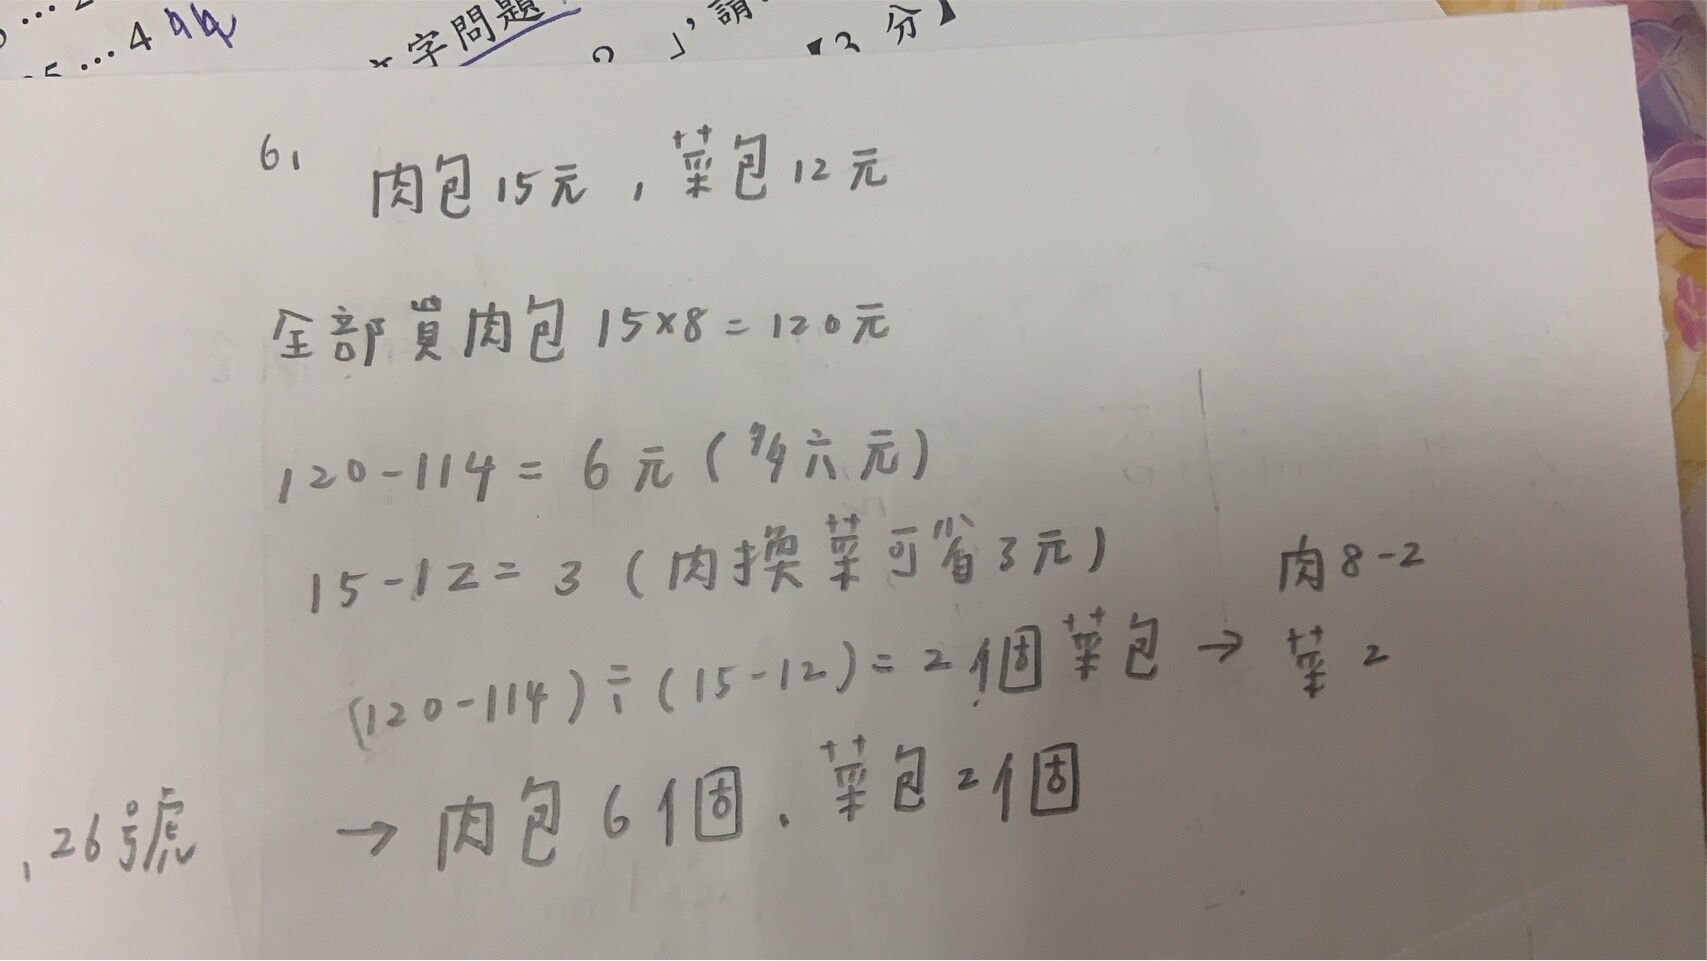 …4
字問題
」，請
【3分】
6,
肉包15元，菜包12元
全部買肉包 15×8=120元
120-114=6元（多六元）
15-12=3（肉換菜可省3元）
肉8-2
(120-114)÷(15-12)=2個菜包→菜2
,26號
→肉包6個、菜包2個